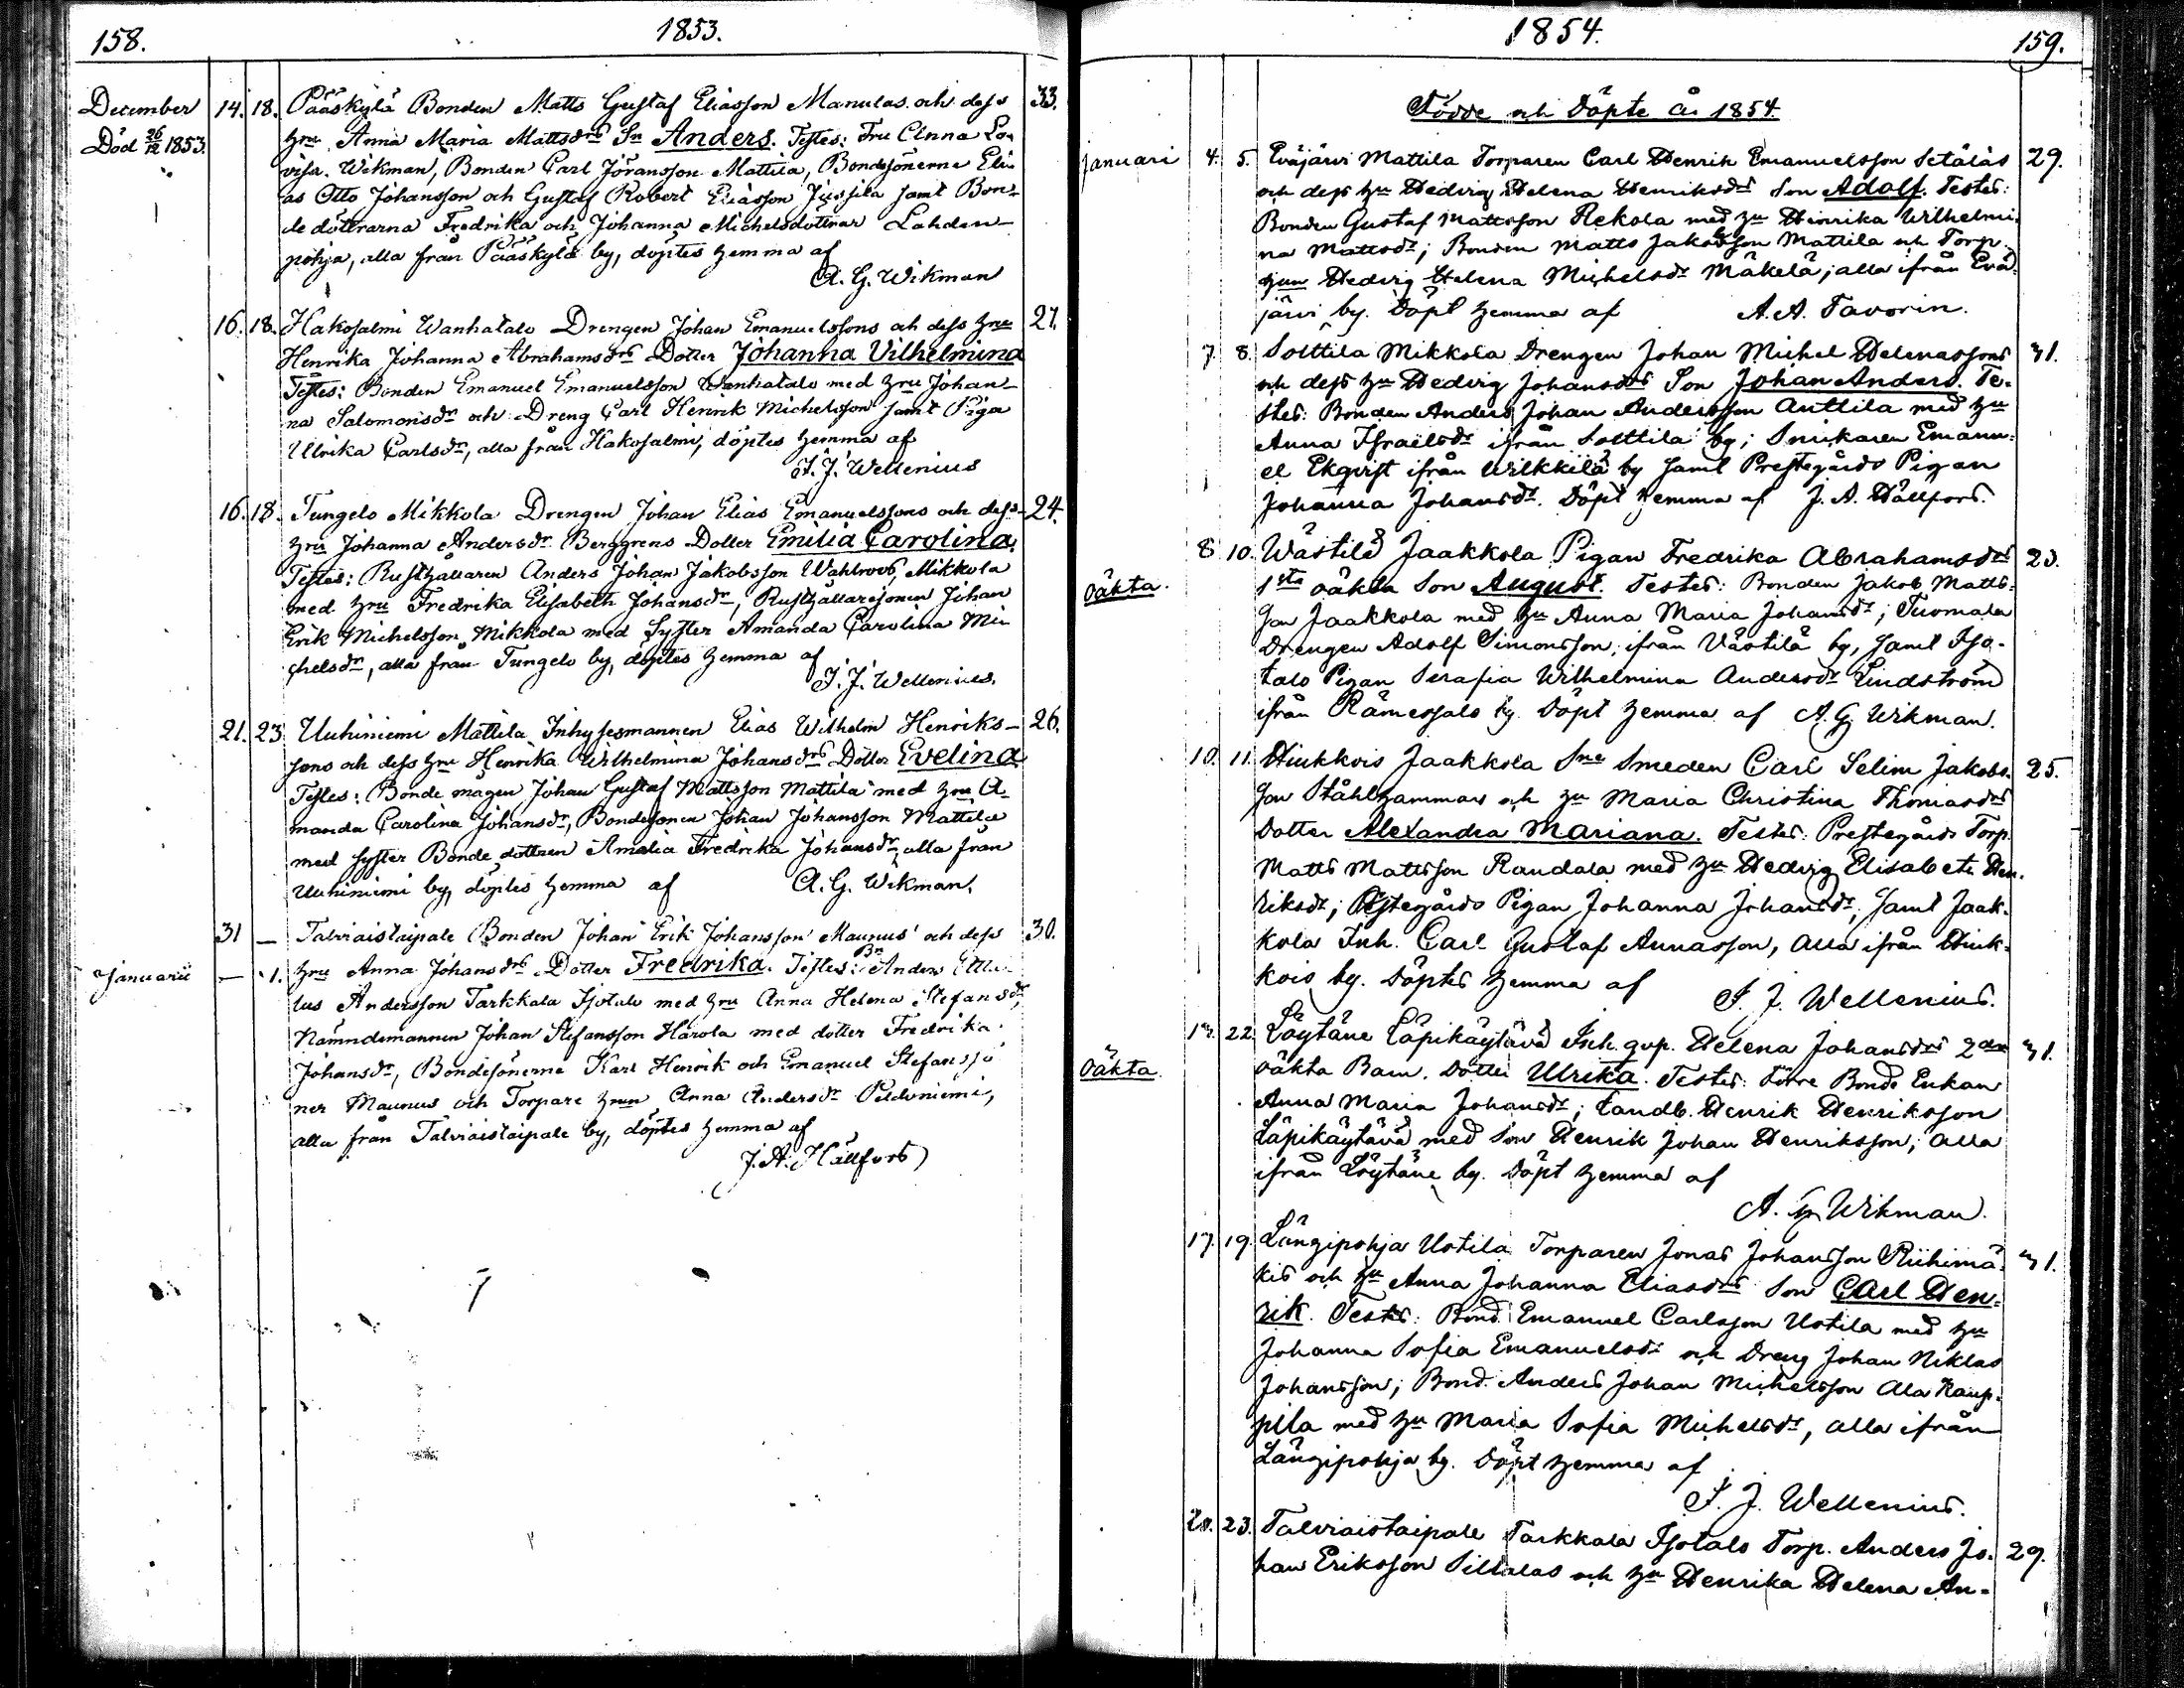 158.
1853.
December 14. 18. Pääskylä Bonden Matts Gustaf Eliasson Manulas och dess 33.
Död 26/12 1853. Hru Anna Maria Mattsdrs Sn Anders. Testes: Fru Anna Lo-
visa Wikman, Bonden Carl Jöransson Mattila, Bondesönerne Eli-
as Otto Johansson och Gustaf Robert Eliasson Jussila samt Bon-
de döttrarna Fredrika och Johanna Michelsdöttrar Lahden-
pohja, alla från Pääskylä by, döptes hemma af
A. G. Wikman
16. 18. Hakosalmi Wanhatalo Drengen Johan Emanuelssons och dess Hru 27.
Henrika Johanna Abrahamsdrs Dotter Johanna Vilhelmina
Testes: Bonden Emanuel Emanuelsson Wanhatalo med Hru Johan-
na Salomonsdr och Dreng Carl Henrik Michelsson samt Piga
Ulrika Carlsdr, alla från Hakosalmi, döptes hemma af
J. J. Wellenius
16. 18. Tungelo Mikkola Drengen Johan Elias Emanuelssons och dess 24.
Hru Johanna Andersdr Berggrens Dotter Emilia Carolina.
Testes: Rusthållaren Anders Johan Jakobsson Wahlroos, Mikkola
med Hru Fredrika Elisabeth Johansdr, Rusthållaresonen Johan
Erik Michelsson Mikkola med Syster Amanda Carolina Mi-
chelsdr, alla från Tungelo by, döptes hemma af
J. J. Wellenius.
21. 23. Uuhiniemi Mattila Inhysesmannen Elias Wilhelm Henriks- 26.
sons och dess Hru Henrika Wilhelmina Johansdrs Dotter Evelina.
Testes: Bonde magen Johan Gustaf Mattsson Mattila med Hru A-
manda Carolina Johansdr, Bondesonen Johan Johansson Mattila
med syster Bonde dottren Amalia Fredrika Johansdr, alla från
Uuhiniemi by, döptes hemma af A. G. Wikman.
31 — Talviaistaipale Bonden Johan Erik Johansson Maunus' och dess 30.
Januarii — 1. Hru Anna Johansdrs Dotter Fredrika. Testes: Bn Anders
lus Andersson Tarkkala Isotalo med Hru Anna Helena Stefansdr,
Nämndemannen Johan Stefansson Harola med dotter Fredrika
Johansdr, Bondesönerne Karl Henrik och Emanuel Stefansso
ner Maunus och Torpare Hrun Anna Andersdr
alla från Talviaistaipale by, döptes hemma af
J. A. Hällfors
1854.
159.
Födde och Döpte år 1854.
Januari 4. 5. Eväjärvi Mattila Torparen Carl Henrik Emanuelsson Setäläs 29.
och dess Hu Hedvig Helena Henriksdrs Son Adolf. Testes:
Bonden Gustaf Mattsson Rekola med Hu Henrika Wilhelmi-
na Mattsdr; Bonden Matts Jakobsson Mattila och Torp.
hun Hedvig Helena Michelsdr Mäkelä; alla ifrån Evä-
järvi by. Döpt hemma af A. A. Favorin.
7. 8. Solttila Mikkola Drengen Johan Michel Helenassons 31.
och dess Hu Hedvig Johansdrs Son Johan Anders. Te-
stes: Bonden Anders Johan Andersson Anttila med Hu
Anna Israelsdr ifrån Solttila by; Snickaren Emanu-
el Ekqvist ifrån Wilkkilä by samt Prestegårds Pigan
Johanna Johansdr. Döpt hemma af J. A. Hällfors.
8. 10. Wästilä Jaakkola Pigan Fredrika Abrahamsdrs 23.
oäkta. 1sta oäkta Son August. Testes: Bonden Jakob Matts-
son Jaakkola med Hu Anna Maria Johansdr; Tuomala
Drengen Adolf Simonsson, ifrån Västilä by, samt Iso-
talo Pigan Serafia Wilhelmina Andersdr Lindström
ifrån Rämessalo by. Döpt hemma af A. G. Wikman.
10. 11. Hiukkois Jaakkola Sne Smeden Carl Selim Jakobs- 25.
son Stålhammars och Hu Maria Christina Thomasdrs
Dotter Alexandra Mariana. Testes: Prestegårds Torp.
Matts Mattsson Randala med Hu Hedvig Elisabeth Hen-
riksdr; Prestegårds Pigan Johanna Johansdr; samt Jaak-
kola Inh. Carl Gustaf Annasson, Alla ifrån Hiuk-
kois by. Döptes hemma af J. J. Wellenius.
22. Löytäne Läpikäytävä Inh. qvp. Helena Johansdrs 2dra 31.
oäkta. oäkta Barn. Dotter Ulrika. Testes: Förre Bonde Enkan
Anna Maria Johansdr; Landb. Henrik Henriksson
Läpikäytävä med Son Henrik Johan Henriksson; Alla
ifrån Löytäne by. Döpt hemma af
A. G. Wikman.
17. 19. Längipohja Uotila Torparen Jonas Johansson Riihimä- 31.
kis och Hu Anna Johanna Eliasdrs Son Carl Hen-
rik. Testes: Bond. Emanuel Carlsson Uotila med Hu
Johanna Sofia Emanuelsdr och Dreng Johan Niklas
Johansson; Bond. Anders Johan Michelsson Ala Kaup-
pila med Hu Maria Sofia Michelsdr, alla ifrån
Längipohja by. Döpt hemma af
J. J. Wellenius.
20. 23. Talviaistaipale Tarkkala Isotalo Torp. Anders Jo- 29.
han Eriksson Sillalas och Hu Henrika Helena An-